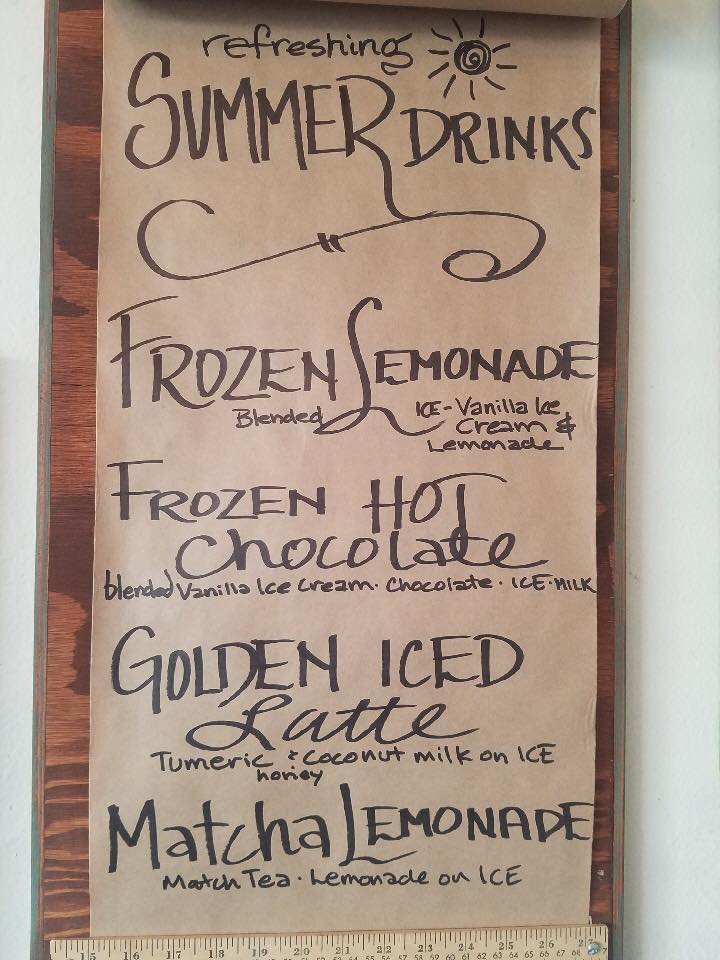 refreshing
SUMMER DRINKS
FROZEN LEMONADE
Blended ICE - Vanilla Ice
Cream &
Lemonade
FROZEN HOT
Chocolate
blended Vanilla Ice Cream · Chocolate · ICE · MILK
GOLDEN ICED
Latte
Tumeric & Coconut milk on ICE
honey
Matcha LEMONADE
Match Tea · Lemonade on ICE
15 16 17 18 19 20 21 22 23 24 25 26